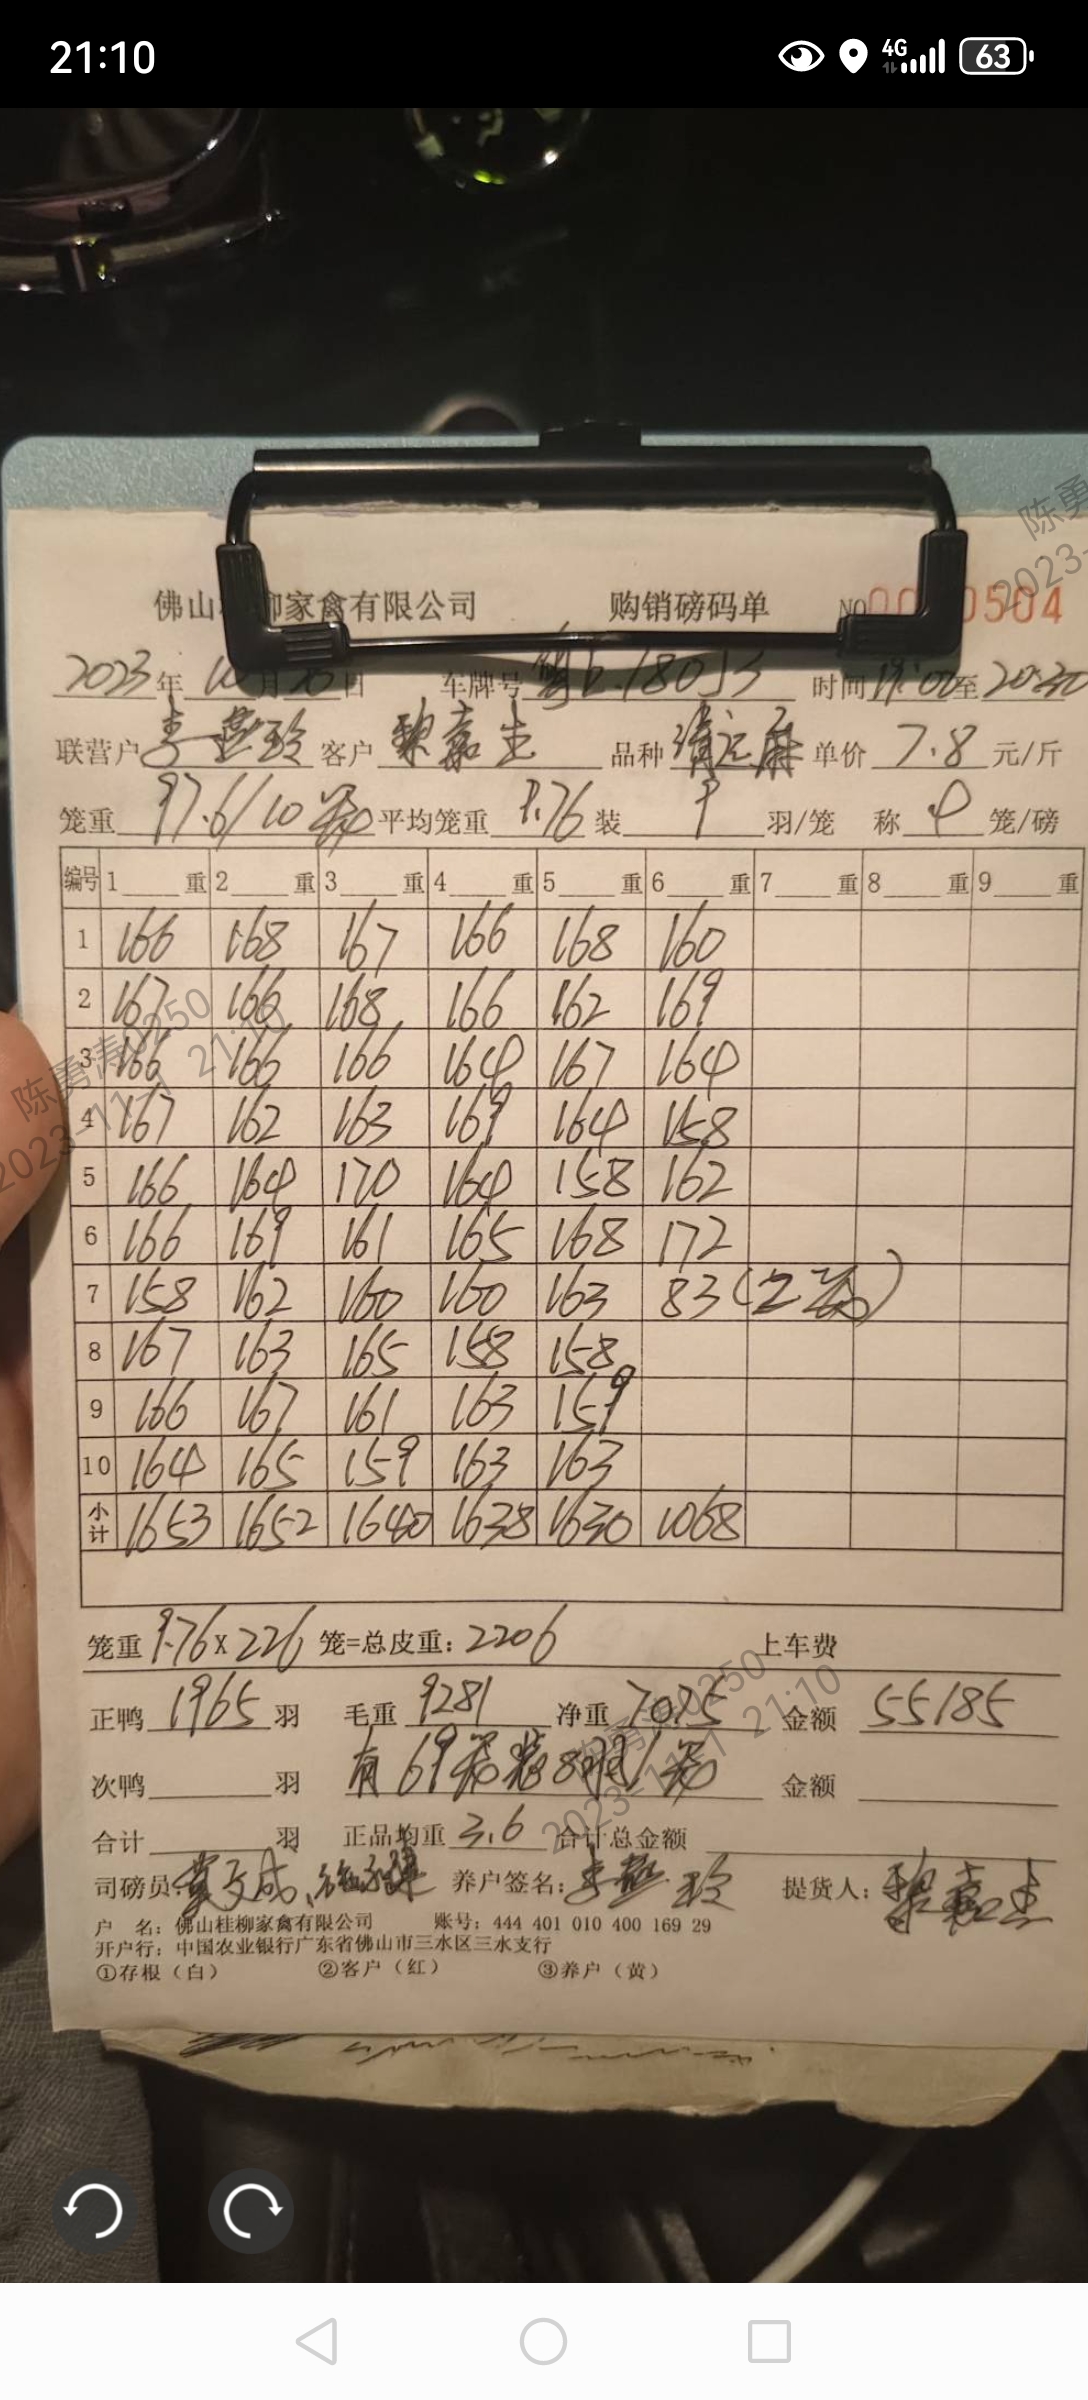 21:10
4G 63
佛山桂柳家禽有限公司 购销磅码单 NO 0504
2023年10月25日 车牌号 时间19:00至20:30
联营户李燕玲 客户黎嘉生 品种清远麻 单价7.8元/斤
笼重97.6/10笼 平均笼重9.76 装9羽/笼 称4笼/磅
编号 1 重 2 重 3 重 4 重 5 重 6 重 7 重 8 重 9 重
1 166 168 167 166 168 160
2 167 166 168 166 162 169
3 166 166 166 164 167 164
4 167 162 163 169 164 158
5 166 164 170 164 158 162
6 166 169 161 165 168 172
7 158 162 160 160 163 83(2笼)
8 167 163 165 158 158
9 166 167 161 163 159
10 164 165 159 163 163
小计 1653 1652 1640 1638 1630 1068
笼重9.76x226笼=总皮重:2206 上车费
正鸭1965羽 毛重9281 净重7075 金额55185
次鸭 羽 有69笼装8羽/笼 金额
合计 羽 正品均重3.6 合计总金额
司磅员: 养户签名:李燕玲 提货人:黎嘉生
户 名:佛山桂柳家禽有限公司 账号:444 401 010 400 169 29
开户行:中国农业银行广东省佛山市三水区三水支行
①存根(白) ②客户(红) ③养户(黄)
陈勇涛0250
21:10